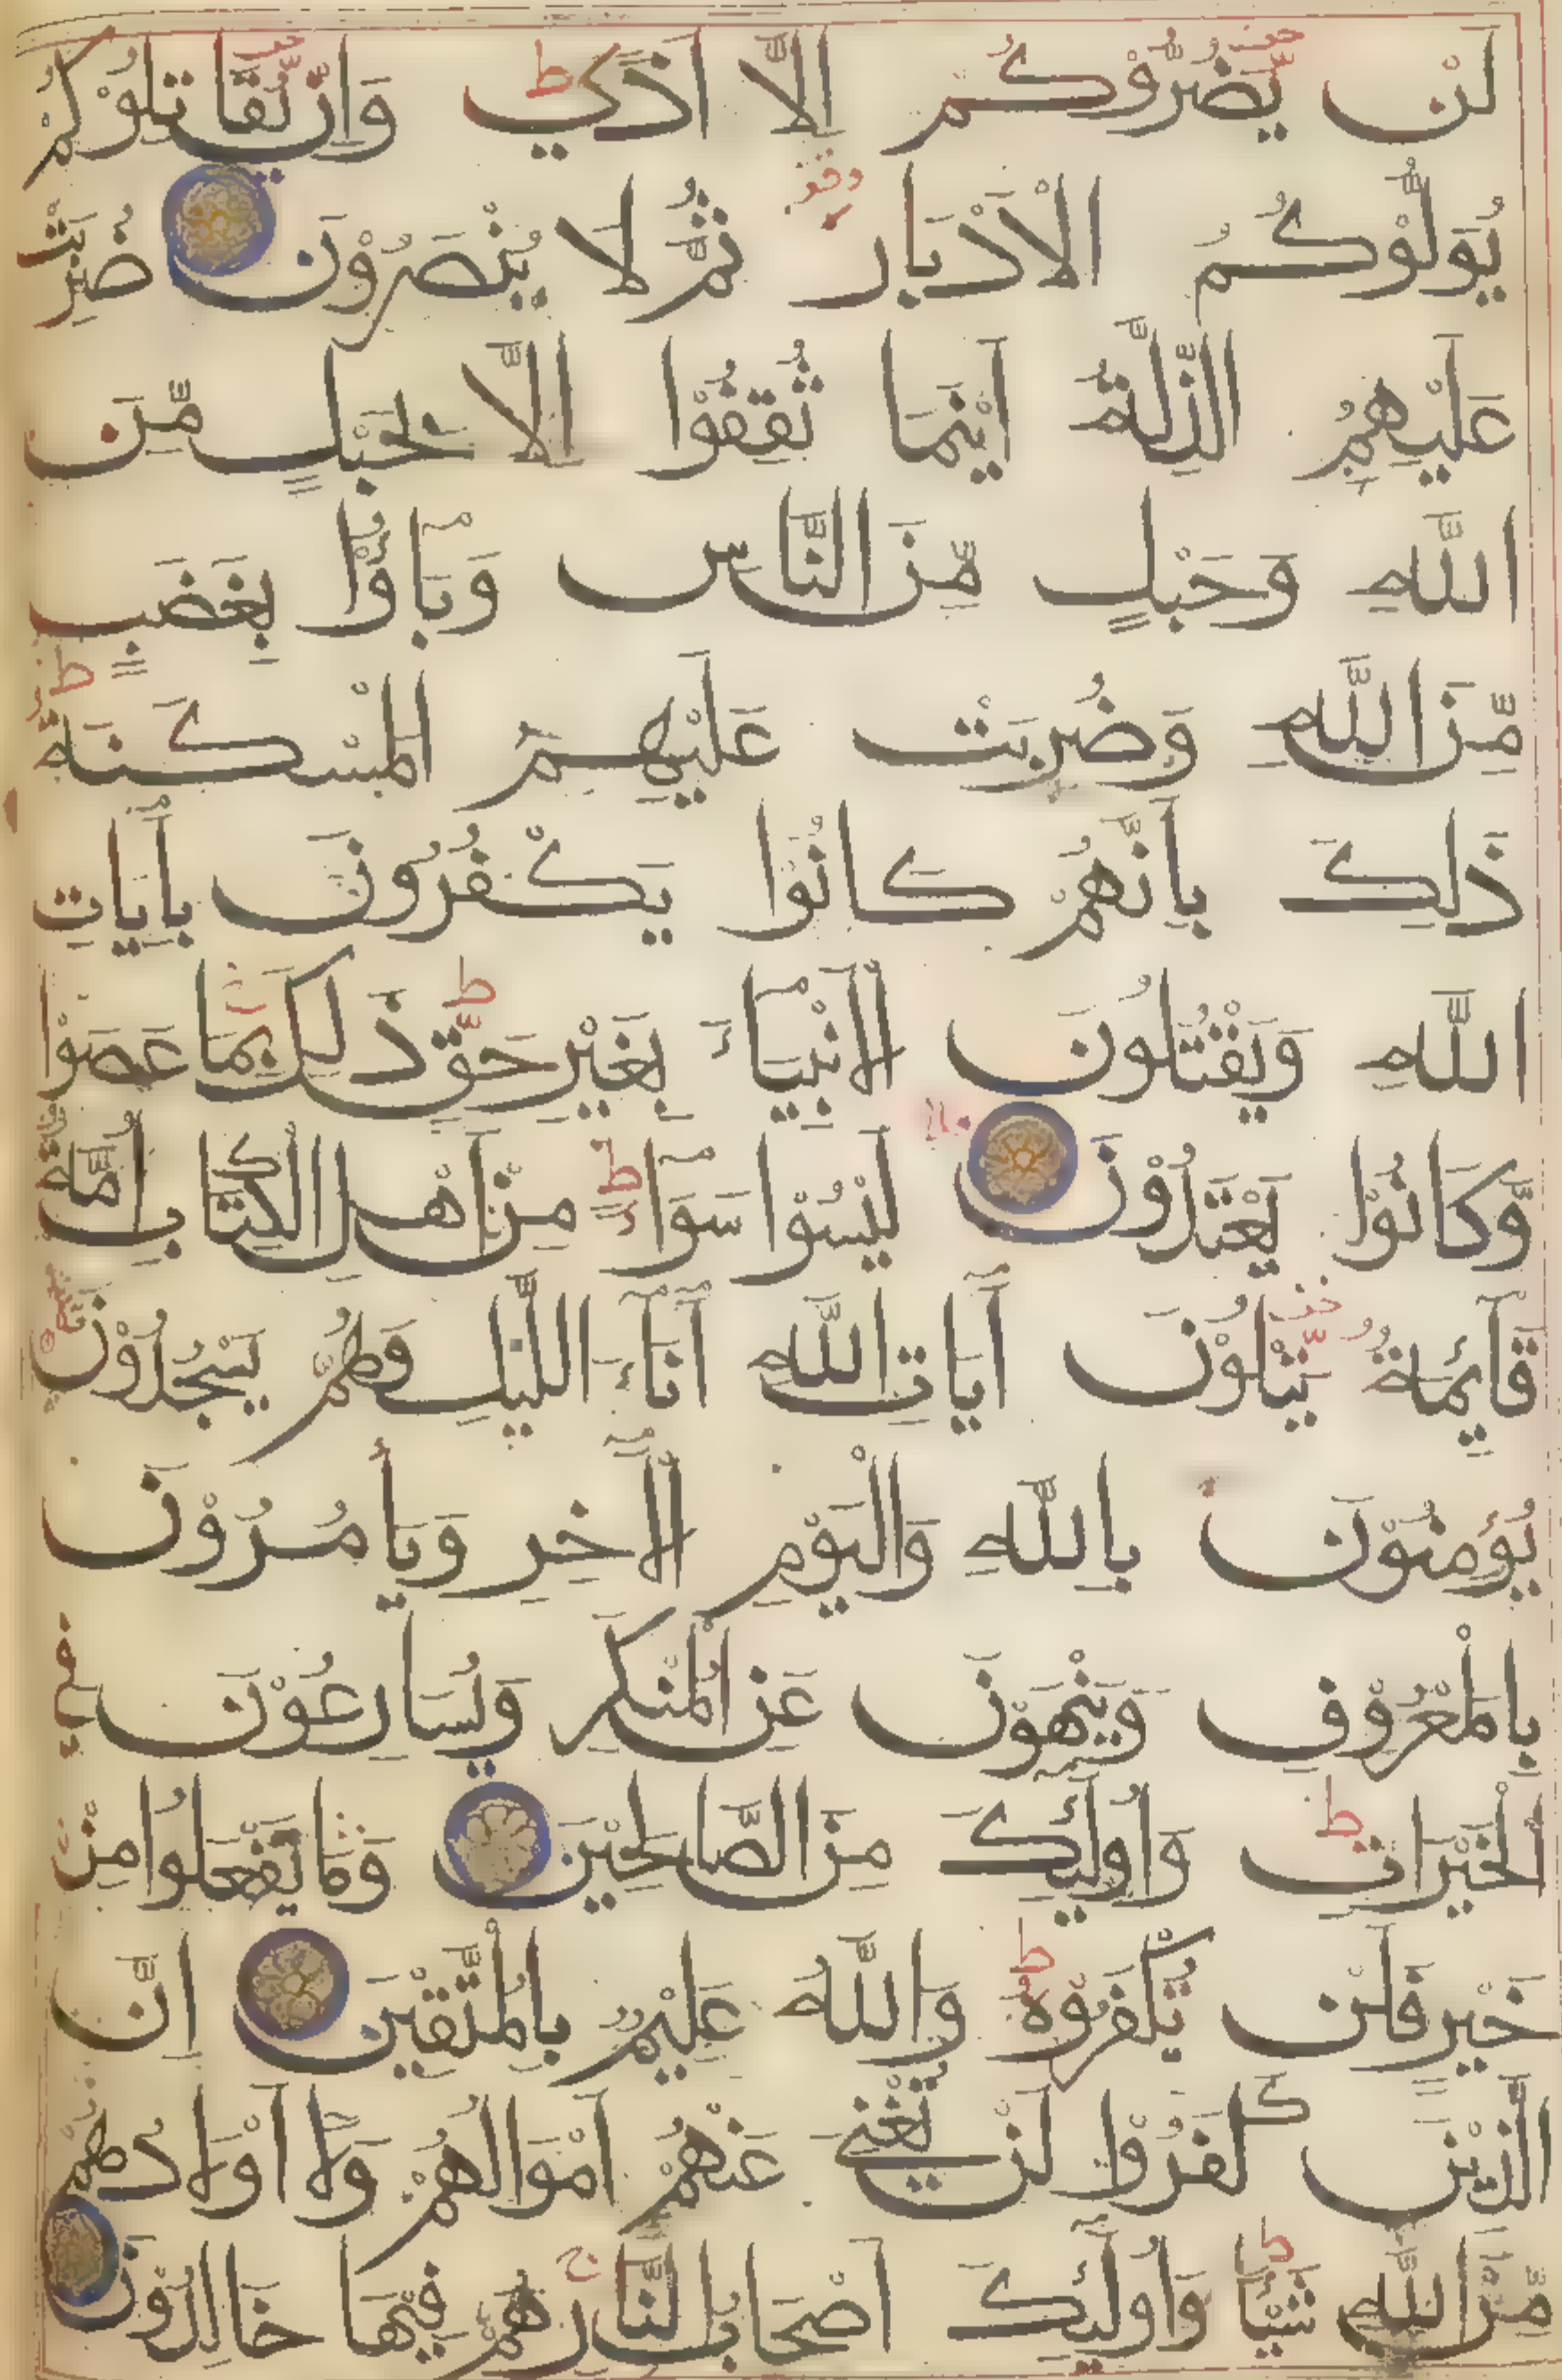 لَنْ يَّضُرُّوْكُمْ اِلَّا اَذًي ط وَاِنْ يُّقَاتِلُوْكُمْ
يُوَلُّوْكُمُ الْاَدْبَارَ ثُمَّ لَا يُنْصَرُوْنَ ضُرِبَتْ
عَلَيْهِمُ الذِّلَّةُ اَيْنَمَا ثُقِفُوْا اِلَّا بِحَبْلٍ مِّنَ
اللّٰهِ وَحَبْلٍ مِّنَ النَّاسِ وَبَآؤُا بِغَضَبٍ
مِّنَ اللّٰهِ وَضُرِبَتْ عَلَيْهِمُ الْمَسْكَنَةُ ط
ذٰلِكَ بِاَنَّهُمْ كَانُوْا يَكْفُرُوْنَ بِاٰيَاتِ
اللّٰهِ وَيَقْتُلُوْنَ الْاَنْبِيَآءَ بِغَيْرِ حَقٍّ ط ذٰلِكَ بِمَا عَصَوْا
وَّكَانُوْا يَعْتَدُوْنَ لَيْسُوْا سَوَآءً ط مِنْ اَهْلِ الْكِتَابِ اُمَّةٌ
قَآئِمَةٌ يَّتْلُوْنَ اٰيَاتِ اللّٰهِ اٰنَآءَ اللَّيْلِ وَهُمْ يَسْجُدُوْنَ
يُؤْمِنُوْنَ بِاللّٰهِ وَالْيَوْمِ الْاٰخِرِ وَيَأْمُرُوْنَ
بِالْمَعْرُوْفِ وَيَنْهَوْنَ عَنِ الْمُنْكَرِ وَيُسَارِعُوْنَ فِي
الْخَيْرَاتِ ط وَاُولٰٓئِكَ مِنَ الصَّالِحِيْنَ وَمَا تَفْعَلُوْا مِنْ
خَيْرٍ فَلَنْ تُكْفَرُوْهُ ط وَاللّٰهُ عَلِيْمٌ بِالْمُتَّقِيْنَ اِنَّ
الَّذِيْنَ كَفَرُوْا لَنْ تُغْنِيَ عَنْهُمْ اَمْوَالُهُمْ وَلَا اَوْلَادُهُمْ
مِّنَ اللّٰهِ شَيْئًا ط وَاُولٰٓئِكَ اَصْحَابُ النَّارِ ج هُمْ فِيْهَا خَالِدُوْنَ